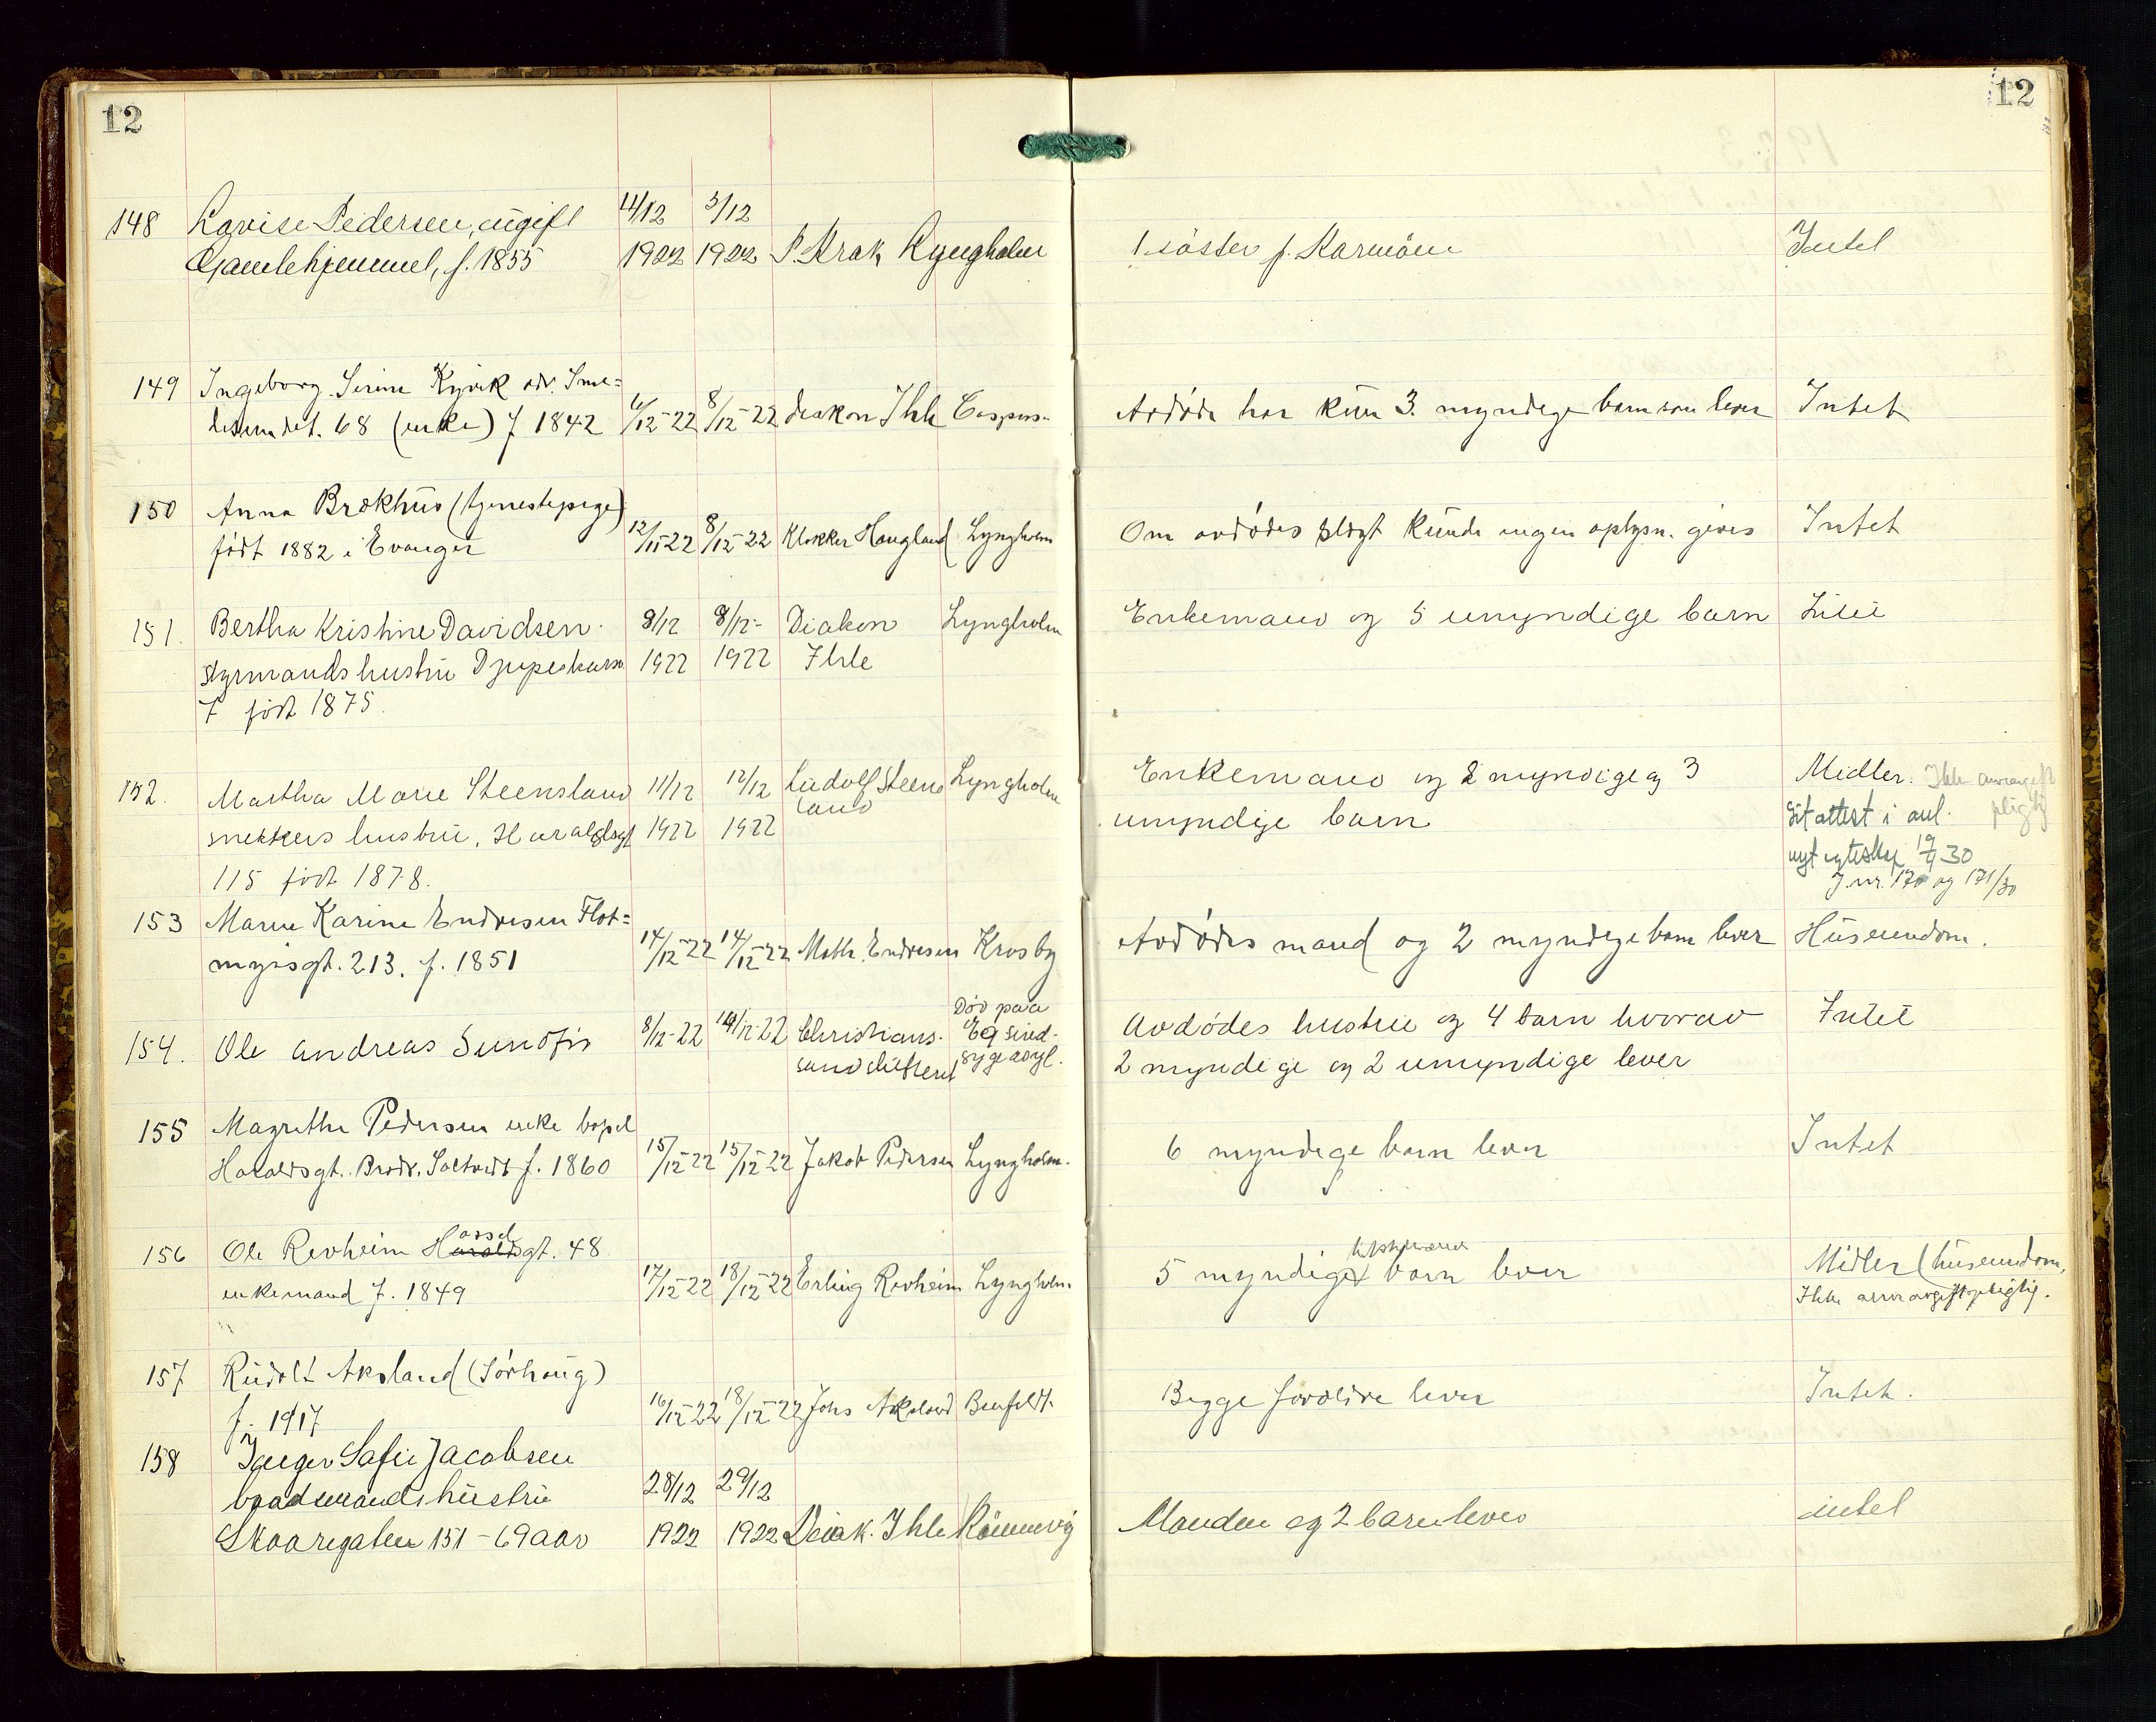 12
12
148 Lovise Pedersen, ugift 4/12 3/12
Gamlehjemmet, f. 1855 1922 1922 P. Krak Lyngholm 1 søster p. Karmøen Intet
149 Ingeborg Serine Kyvik adr. Sme-
68 (enke) f 1842 6/12-22 8/12-22 diakon Ihle Caspers. Avdøde har kun 3 myndige barn som lever Intet
150 Anna Brækhus (tjenestepige)
født 1882 i Evanger 12/11-22 8/12-22 Klokker Haugland Lyngholm Om avdødes slegt kunde ingen oplysn. gives Intet
151. Bertha Kristine Davidsen. 8/12 9/12- Diakon Lyngholm Enkemand og 5 umyndige barn Intet
styrmandshustru Djupeskarv. 1922 1922 Ihle
7 født 1875.
152. Martha Marie Steensland 11/12 12/12 Ludolf Steens Lyngholm Enkemand og 2 myndige og 3 Midler. Ikke arveavgift
land pligtig
snekkers hustru, Haraldsgt 1922 1922 umyndige barn Git attest i anl.
115 født 1878. nyt egteskap 19/9-30
J. nr. 170 og 171/30
153 Maren Karine Endresen Flot=
myrsgt. 213. f. 1851 14/12-22 14/12-22 Math. Endresen Krosby Avdødes mand og 2 myndige barn lever Huseiendom.
Død paa
154. Ole Andreas Sundfør 8/12-22 14/12-22 Christians- Eg sind- Avdødes hustru og 4 barn hvorav Intet
sand skifterett sygeasyl. 2 myndige og 2 umyndige lever
155 Magrethe Pedersen enke bopel
Haraldsgt. Brødr. Saltvedt f. 1860 15/12-22 15/12-22 Jakob Pedersen Lyngholm. 6 myndige barn lever Intet
assel
156 Ole Revheim Haraldsgt. 48
enkemand f. 1849 17/12-22 18/12-22 Erling Revheim Lyngholm. 5 myndige barn lever Midler (huseiendom,
Ikke arveavgiftspligtig.
157 Rudolf Aksland (Sørhaug)
f. 1917 16/12-22 18/12-22 Johs Aksland Benfeldt. Begge foreldre lever Intet.
158 Inger Sofie Jacobsen
baadsmandshustru 28/12 29/12
Skaaregaten 151 - 69 aar 1922 1922 Diak. Ihle Rønnevig Manden og 2 barn lever intet